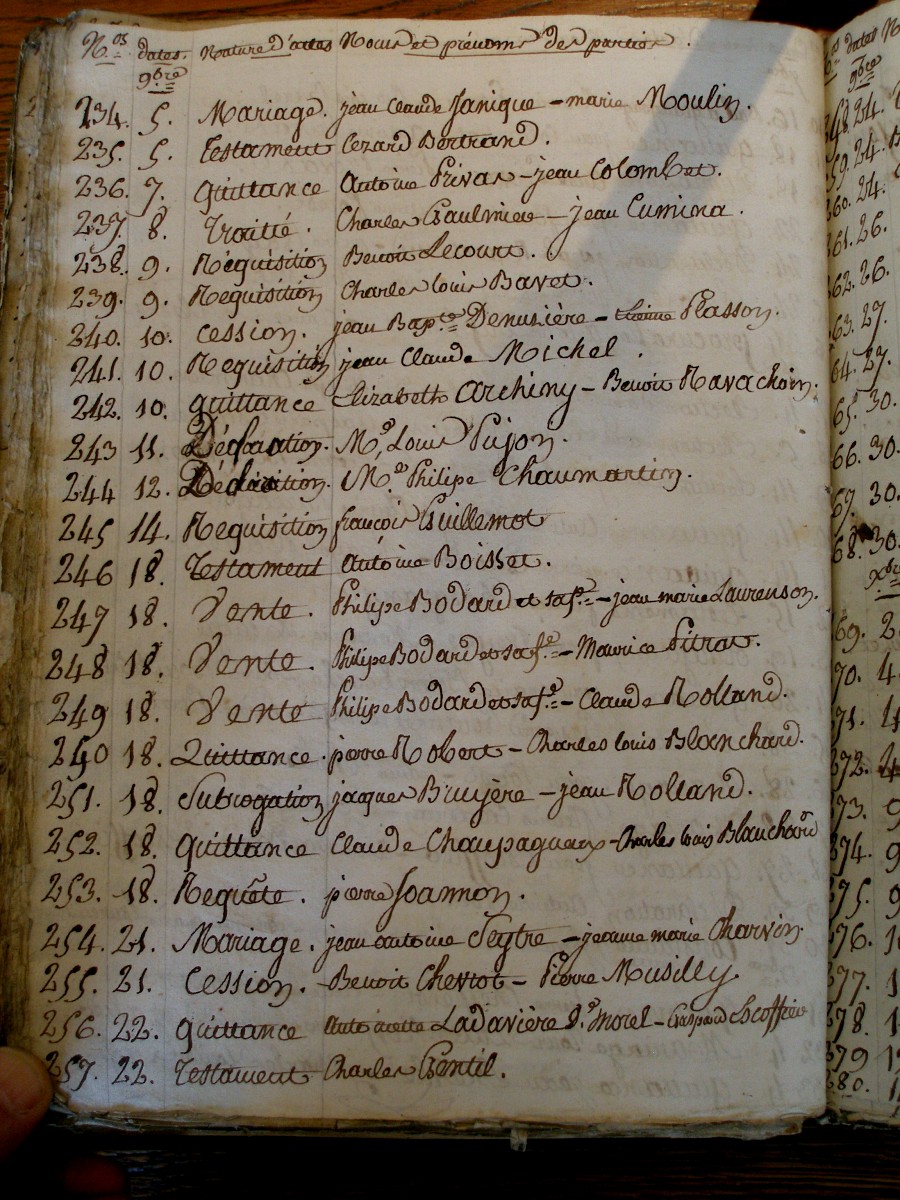 N.os dates. Nature d'actes Noms et prénoms des parties.
9bre
234. 5. Mariage. jean Claude Janique - marie Moulin.
235. 5. Testament Cezard Bertrand.
236. 7. Quittance Antoine Privas - jean Colombet.
237. 8. Traitté. Charles Chaulmiere - jean Cumina.
238. 9. Requisition Benoit Lecourt.
239. 9. Requisition Charles Louis Bavet.
240. 10. Cession. jean Bapte Denuzière - Plasson.
241. 10. Requisition jean Claude Michel.
242. 10. quittance Elizabeth Archiny - Benoit Ravachoin.
243 11. Mo. Louis Pujon.
244 12. Mo. Philipe Chaumartin.
245 14. Requisition françois Guillemot
246 18. Testament Antoine Boisset.
247 18. Vente. Philipe Bodard et sa fe - jean marie Laurenson.
248 18. Vente. Philipe Bodard et sa fe - Maurice Pitrat.
249 18. Vente Philipe Bodard et sa fe - Claude Rolland.
240 18. Quittance. pierre Robert - Charles Louis Blanchard.
251. 18. Subrogation jacques Bruyère - jean Rolland.
252. 18. quittance Claude Champagneux - Charles Louis Blanchard
253. 18. Requête. pierre Joannon.
254. 21. Mariage. jean antoine Seytre - jeanne marie Charvin.
255. 21. Cession. Benoit Chevrot - Pierre Musilly.
256. 22. quittance Antoinette Ladavière Morel - Gaspard Escoffier
257. 22. Testament Charles Gentil.